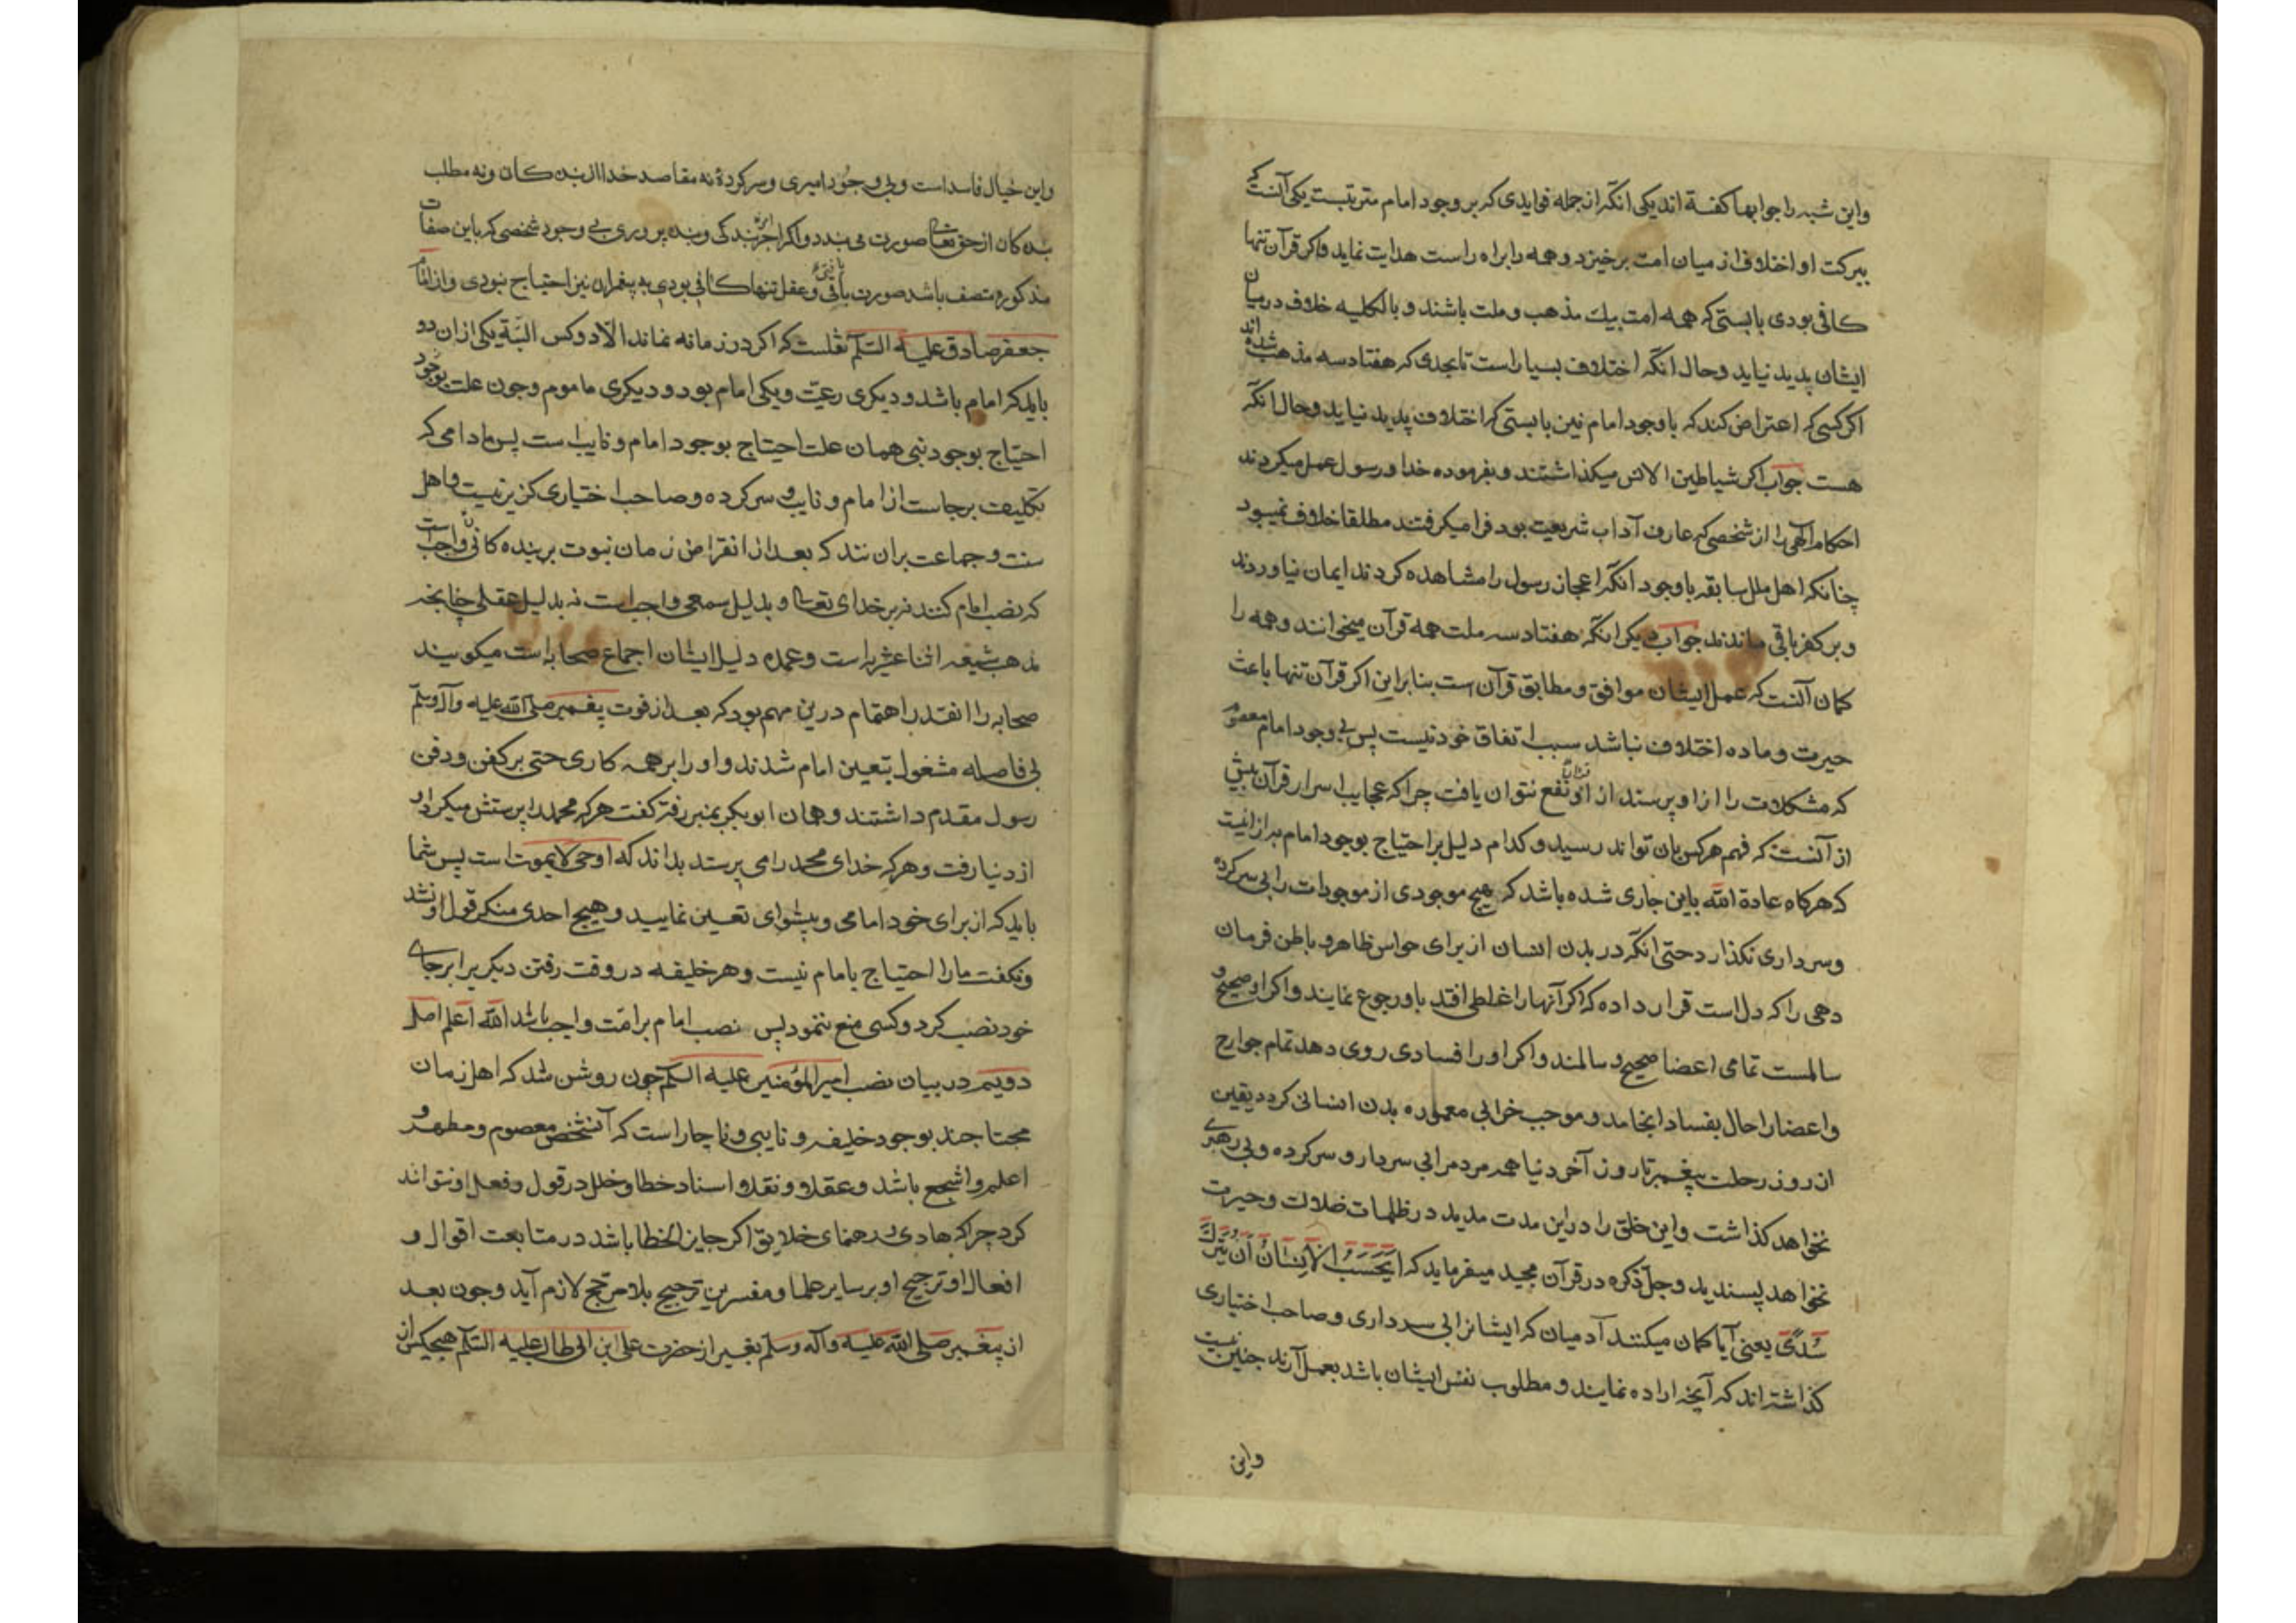 واین شبه را جوابها کفته اند یکی انکه از جمله فوایدی که بر وجود امام مترتبست یکی آنست که
ببرکت او اختلاف از میان امت برخیزد و همه را براه راست هدایت نماید واکر قرآن تنها
کافی بودی بایستی که همه امت بیك مذهب و ملت باشند و بالکلیه خلاف در میان
ایشان پدید نیاید وحال انکه اختلاف بسیار است تا بحدی که هفتاد سه مذهب شده اند
اکر کسی که اعتراض کند که با وجود امام نیز بایستی که اختلاف پدید نیاید وحال انکه
هست جواب اکر شیاطین الانس میکذاشتند و بفرموده خدا و رسول عمل میکردند
احکام آلهی را از شخصی که عارف آداب شریعت بود فرا میکرفتند مطلقا خلاف نمیبود
چنانکه اهل ملل سابقه با وجود انکه اعجاز رسول را مشاهده کردند ایمان نیاوردند
و بر کفر باقی ماندند جواب دیکر انکه هفتاد سه ملت همه قرآن میخوانند وهمه را
کمان آنست که عمل ایشان موافق و مطابق قرآن است بنابراین اکر قرآن تنها باعث
حیرت وماده اختلاف نباشد سبب اتفاق خود نیست پس بی وجود امام معصوم
که مشکلات را از او پرسند از او نفع نتوان یافت چراکه عجایب اسرار قرآن بیش
از آنست که فهم هر کس بان تواند رسید و کدام دلیل بر احتیاج بوجود امام به از انیست
که هرکاه عادة الله باین جاری شده باشد که هیچ موجودی از موجودات را بی سرکرده
وسرداری نکذارد حتی انکه در بدن انسان از برای حواس ظاهر و باطن فرمان
دهی را که دل است قرار داده که اکر آنها را غلطی افتد باو رجوع نمایند واکر او صحیح و
سالمست تمامی اعضا صحیح و سالمند واکر او را فسادی روی دهد تمام جوارح
واعضا را حال بفساد انجامد و موجب خرابی معموره بدن انسانی کردد یقین
از روز رحلت پیغمبر تا روز آخر دنیا همه مردم را بی سردار و سرکرده و بی رهبری
نخواهد کذاشت واین خلق را در این مدت مدید در ظلمات ضلالت و حیرت
نخواهد پسندید وجل ذکره در قرآن مجید میفرماید که اَیَحْسَبُ الْاِنْسَانُ اَنْ یُتْرَكَ
سُدًی یعنی آیا کمان میکنند آدمیان که ایشانرا بی سرداری و صاحب اختیاری
کذاشته اند که آنچه اراده نمایند و مطلوب نفس ایشان باشد بعمل آرند چنین نیست
واین
واین خیال فاسد است و بی وجود امیری و سرکردۀ نه مقاصد خدا از بندکان ونه مطلب
بندکان از حق تعالی صورت می بندد واکر اجر بندکی و بنده پروری بی وجود شخصی که باین صفات
مذکوره متصف باشد صورت یافتی وعقل تنها کافی بودی به پیغمبران نیز احتیاج نبودی واز امام
جعفر صادق علیه السلام نقلست که اکر در زمانه نماند الا دو کس البته یکی از ان دو
باید که امام باشد و دیکری رعیت ویکی امام بود و دیکری ماموم وچون علت
احتیاج بوجود نبی همان علت احتیاج بوجود امام و نایب است پس مادامی که
تکلیف برجاست از امام و نایب و سرکرده و صاحب اختیاری کزیر نیست واهل
سنت و جماعت برانند که بعد از انقراض زمان نبوت بر بندکان واجب است
که نصب امام کنند نه بر خدای تعالی و بدلیل سمعی واجبست نه بدلیل عقلی چنانچه
مذهب شیعه اثنا عشریه است وعمده دلیل ایشان اجماع صحابه است میکویند
صحابه را انقدر اهتمام درین مهم بود که بعد از فوت پیغمبر صلی الله علیه وآله وسلم
بی فاصله مشغول بتعین امام شدند و او را بر همه کاری حتی بر کفن و دفن
رسول مقدم داشتند وهمان ابوبکر بمنبر رفته کفت هرکه محمد را پرستش میکرد او
از دنیا رفت وهرکه خدای محمد را می پرستد بداند که او حی لایموت است پس شما
باید که از برای خود امامی و پیشوای تعیین نمایید وهیچ احدی منکر قول او نشد
ونکفت ما را احتیاج بامام نیست وهر خلیفه در وقت رفتن دیکریرا برجای
خود نصب کرد وکسی منع ننمود پس نصب امام بر امت واجب باشد الله اعلم اصل
دویم در بیان نصب امیرالمؤمنین علیه السلام چون روشن شد که اهل زمان
محتاجند بوجود خلیفه و نایبی وناچار است که آنشخص معصوم و مطهر و
اعلم و اشجع باشد وعقلا و نقلا و اسناد خطا و خلل در قول و فعل او نتواند
کرد چراکه هادی و رهنمای خلایق اکر جایز الخطا باشد در متابعت اقوال و
افعال او ترجیح او بر سایر علما و مفسرین ترجیح بلا مرجح لازم آید وچون بعد
از پیغمبر صلی الله علیه وآله وسلم بغیر از حضرت علی ابن ابی طالب علیه السلام هیچکس از